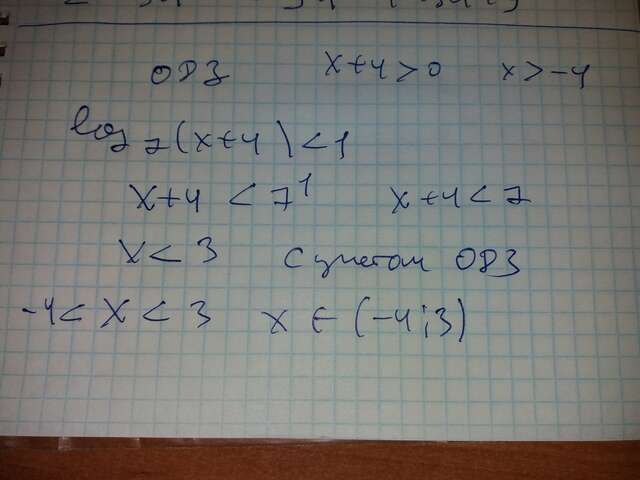 ОДЗ x+4>0 x>-4
log 7 (x+4) <1
x+4 < 7¹ x+4<7
x< 3 с учетом ОДЗ
-4< x < 3 x ∈ (-4;3)